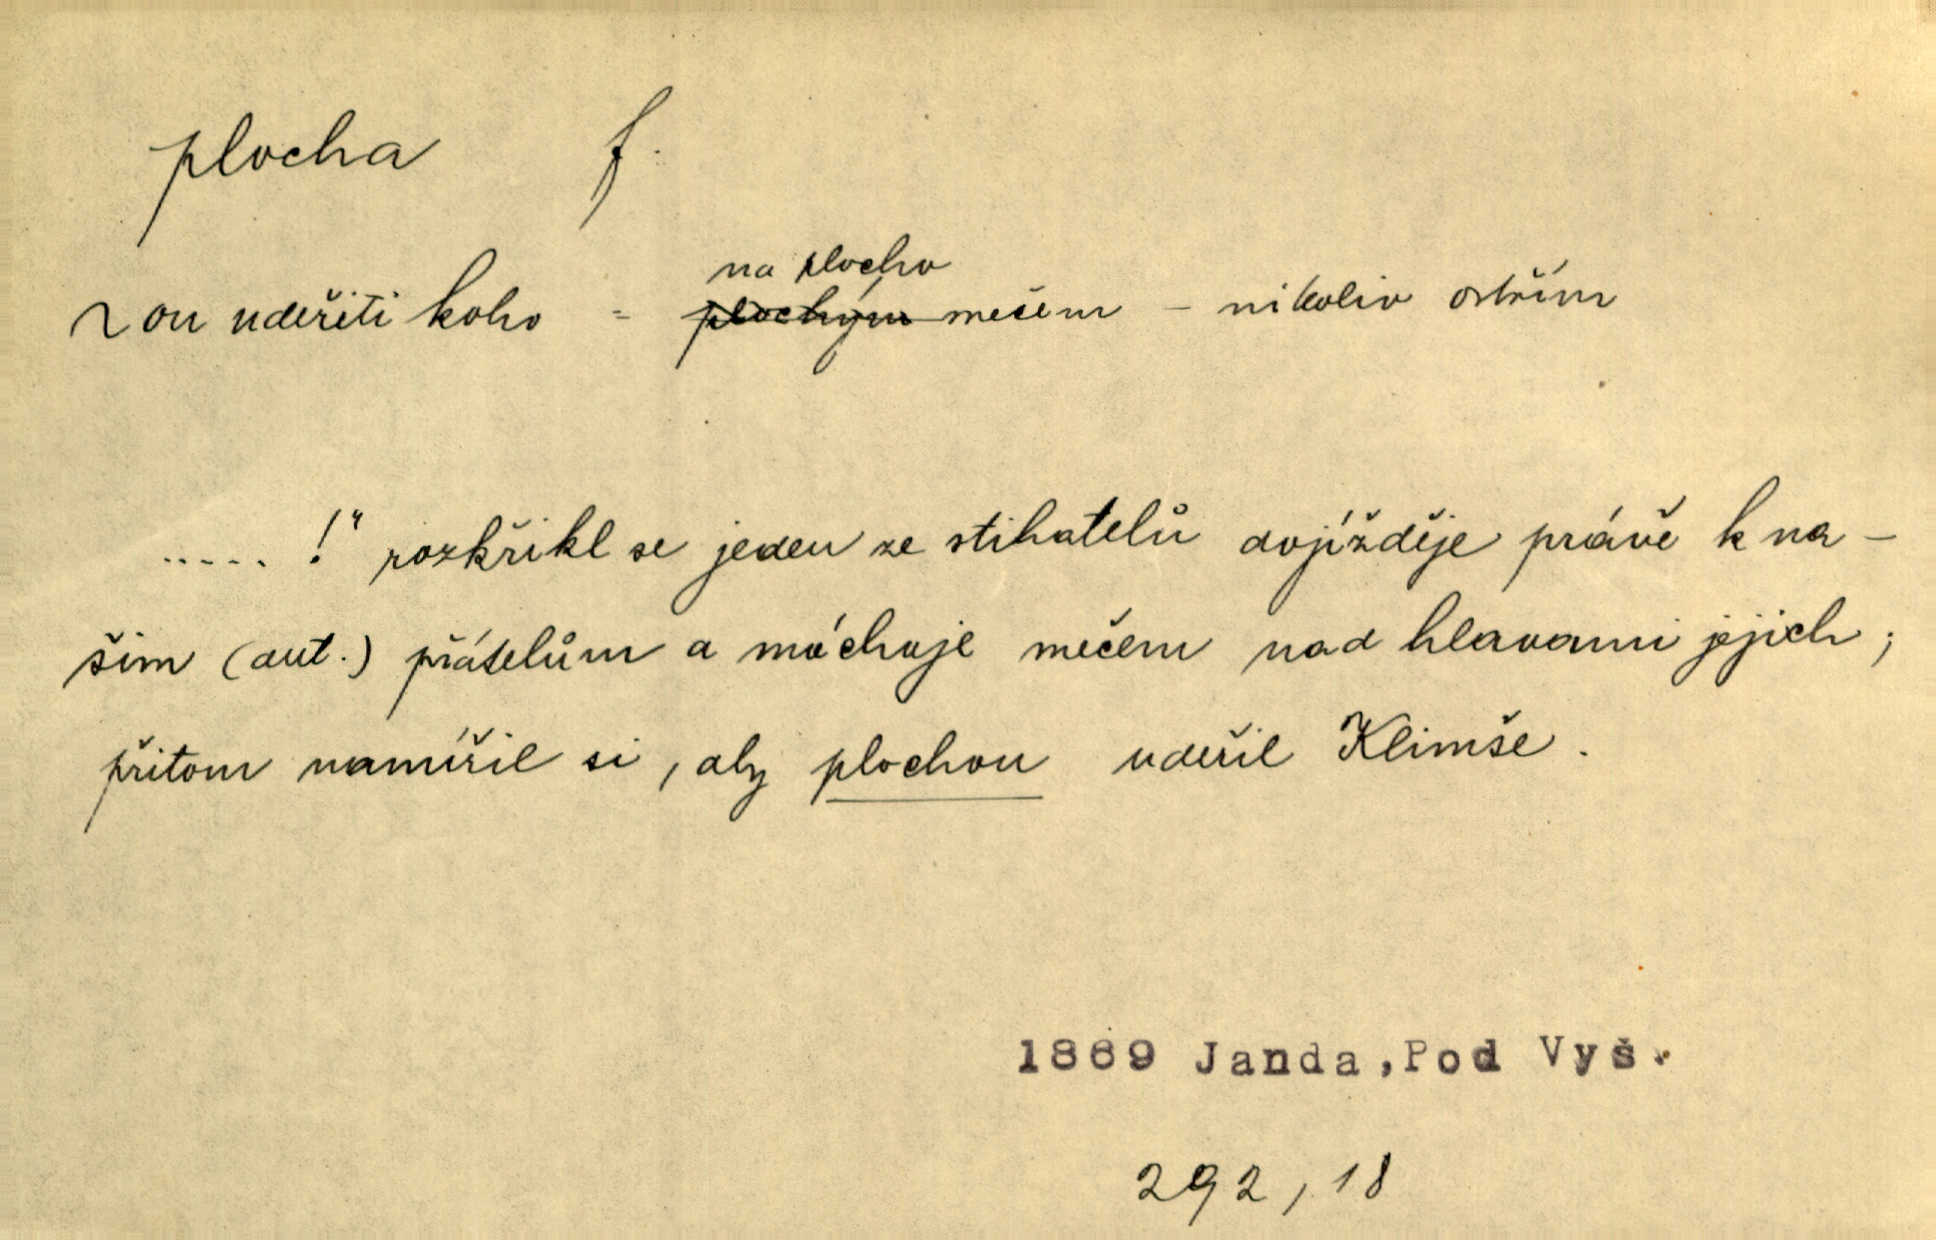 plocha f.
~ou udeřiti koho = na plocho
plochým mečem – nikoliv ostřím
..... !" rozkřikl se jeden ze stihatelů dojížděje právě k na-
šim (aut.) přátelům a máchaje mečem nad hlavami jejich;
přitom namířil si, aby plochou udeřil Klimše.
1869 Janda,Pod Vyš.
292, 18